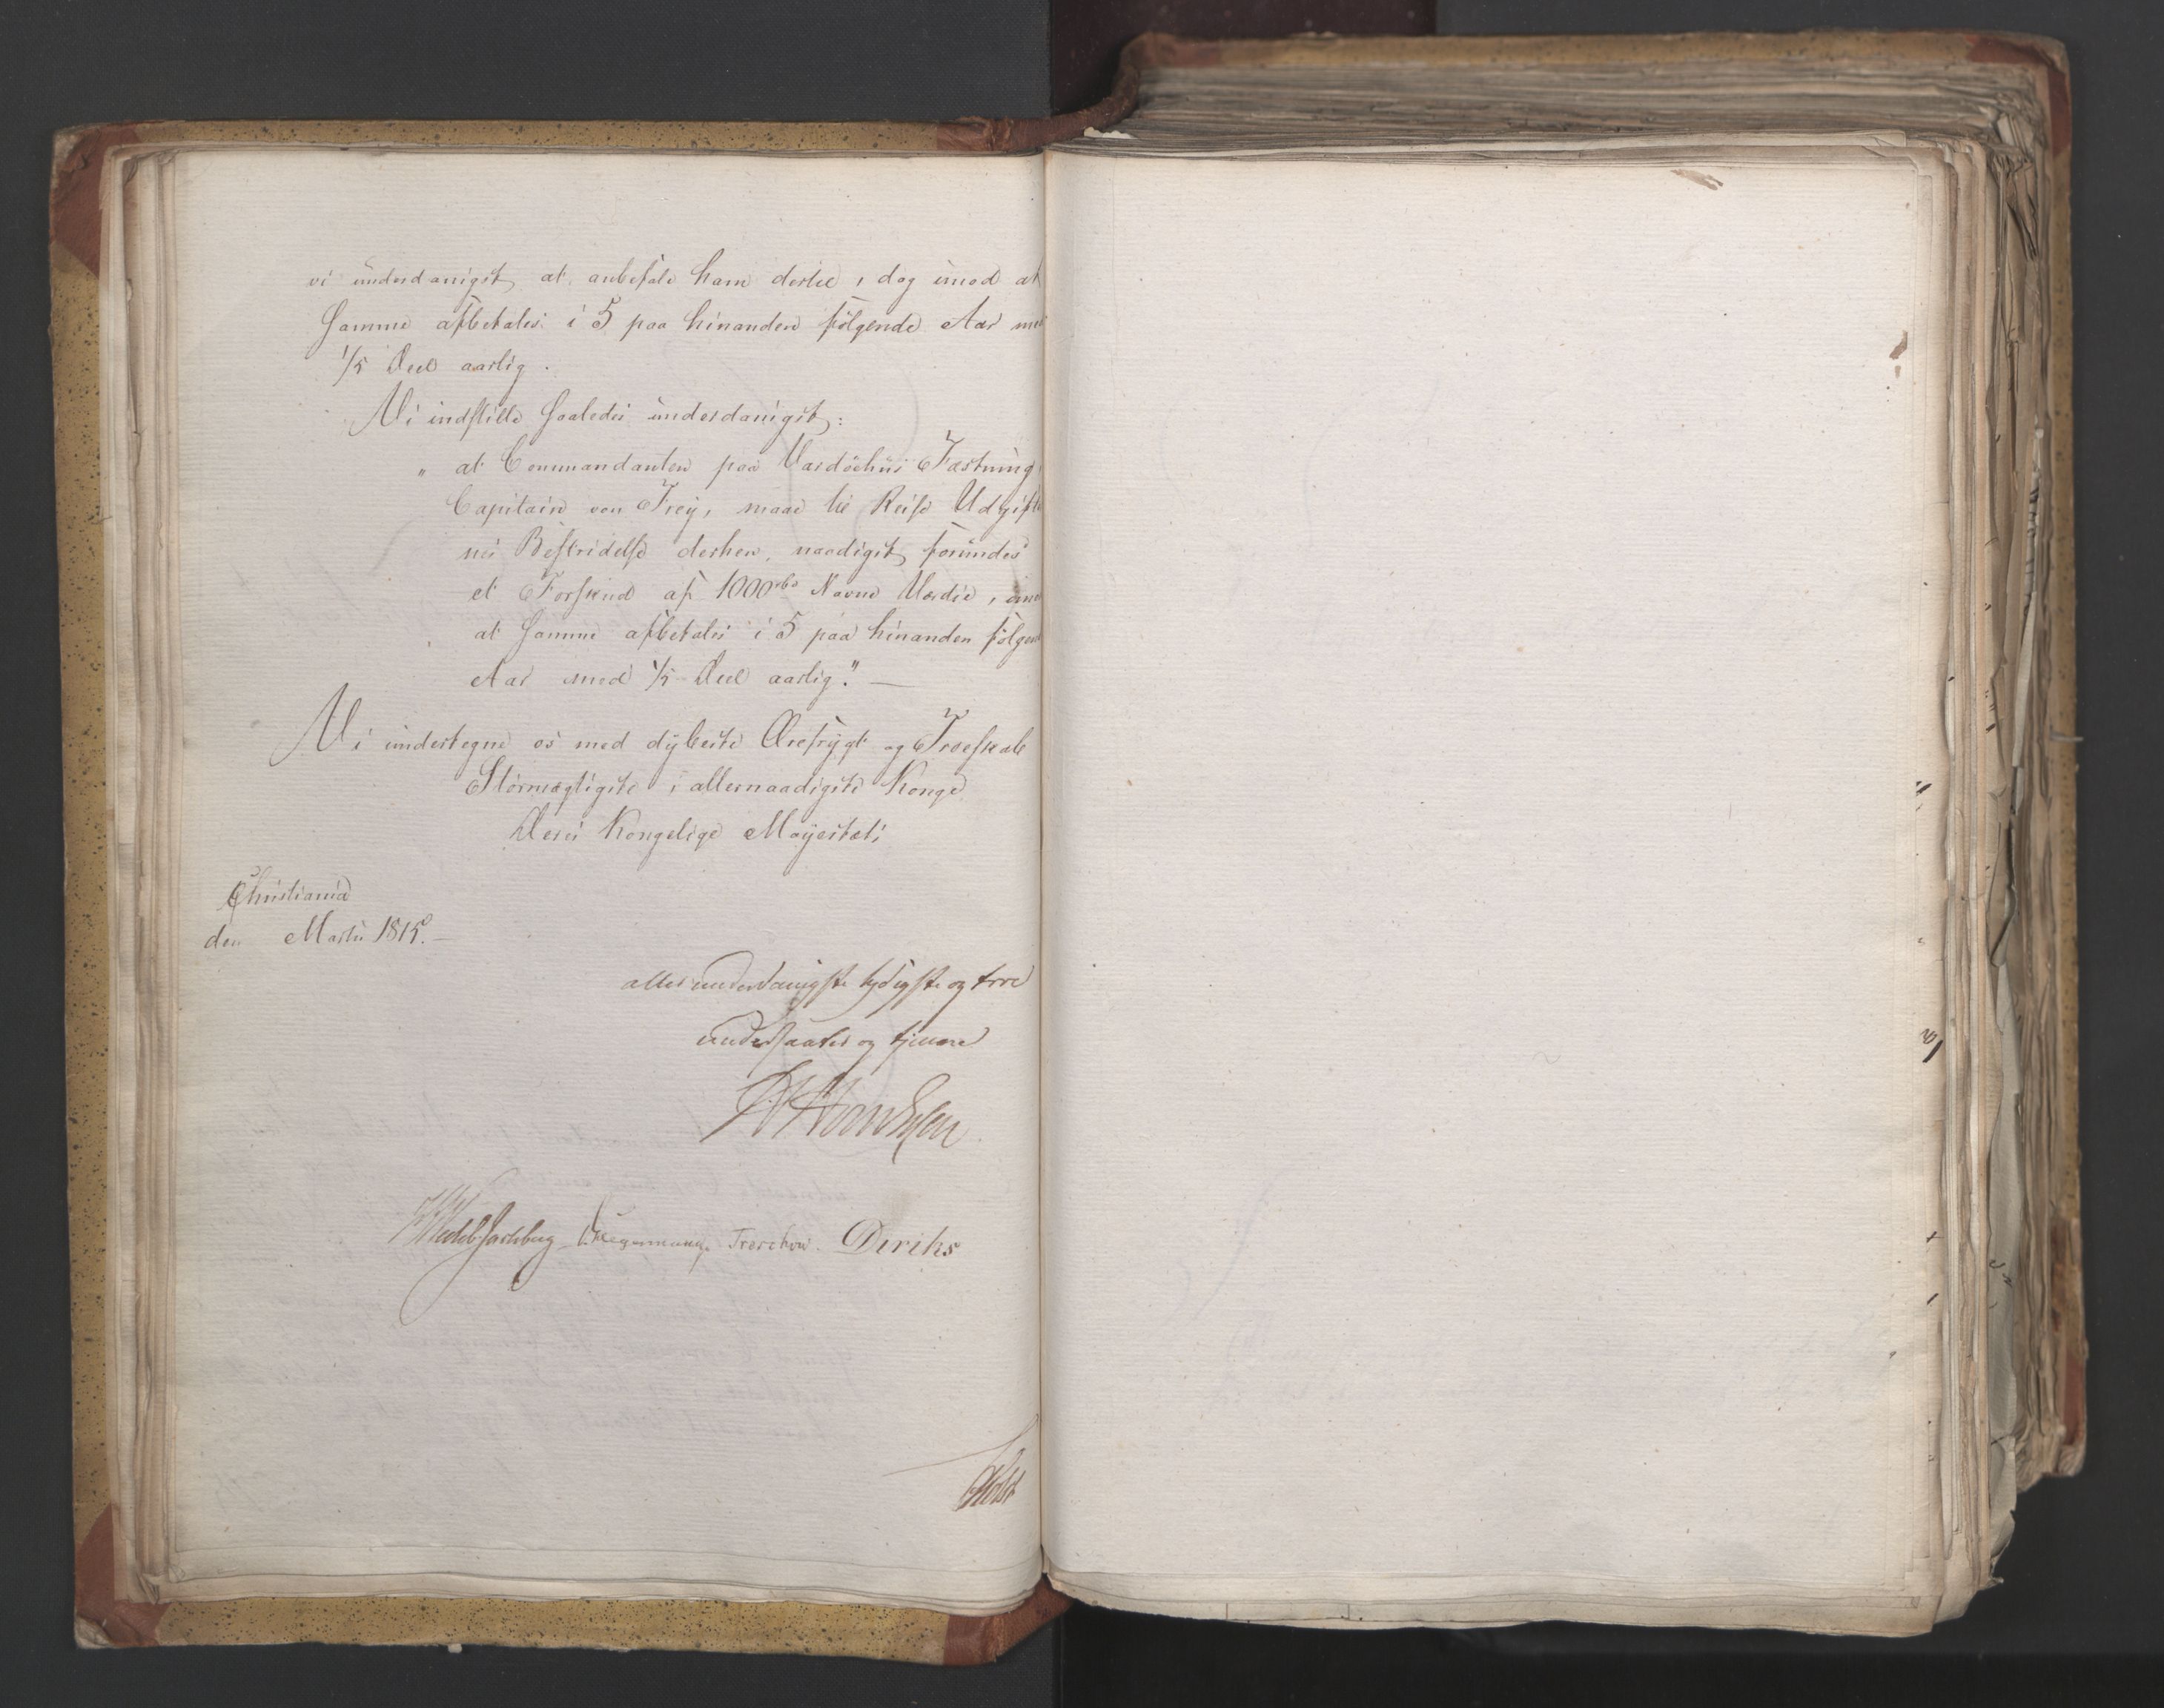 vi underdanigst at anbefale ham dertil, dog imod at
samme afbetales i 5 paa hinanden følgende Aar med
1/5 Deel aarlig.
Vi indstille saaledes underdanigst:
" at Commandanten paa Vardøehuus Fæstning
Capitain von Frey, maae til Reise Udgifter
nes Bestridelse derhen, naadigst forundes
et Forskud af 1000 rbd Navne Værdie, imod
at samme afbetales i 5 paa hinanden følgende
Aar med 1/5 Deel aarlig." —
Vi undertegne os med dybeste Ærefrygt og Troeskab
Stormægtigste, allernaadigste Konge
Deres Kongelige Mayestæts
Christiania
den Martii 1815. —
allerunderdanigste lydigste og troe
undersaater og tjenere
Wedel Jarlsberg Hegermann Treschow. Diriks
Holst